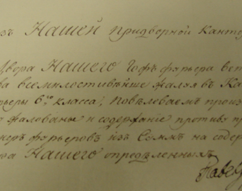 Нашей придворной Канто
Двора Нашего Гофъ фурьера
всемилостивѣйше жалуя в Ка
6го класса, повелѣваемъ произ
жалованье и содержание противъ пр
фурьеровъ изъ Суммъ на содер
Нашего опредѣленныхъ
Павел